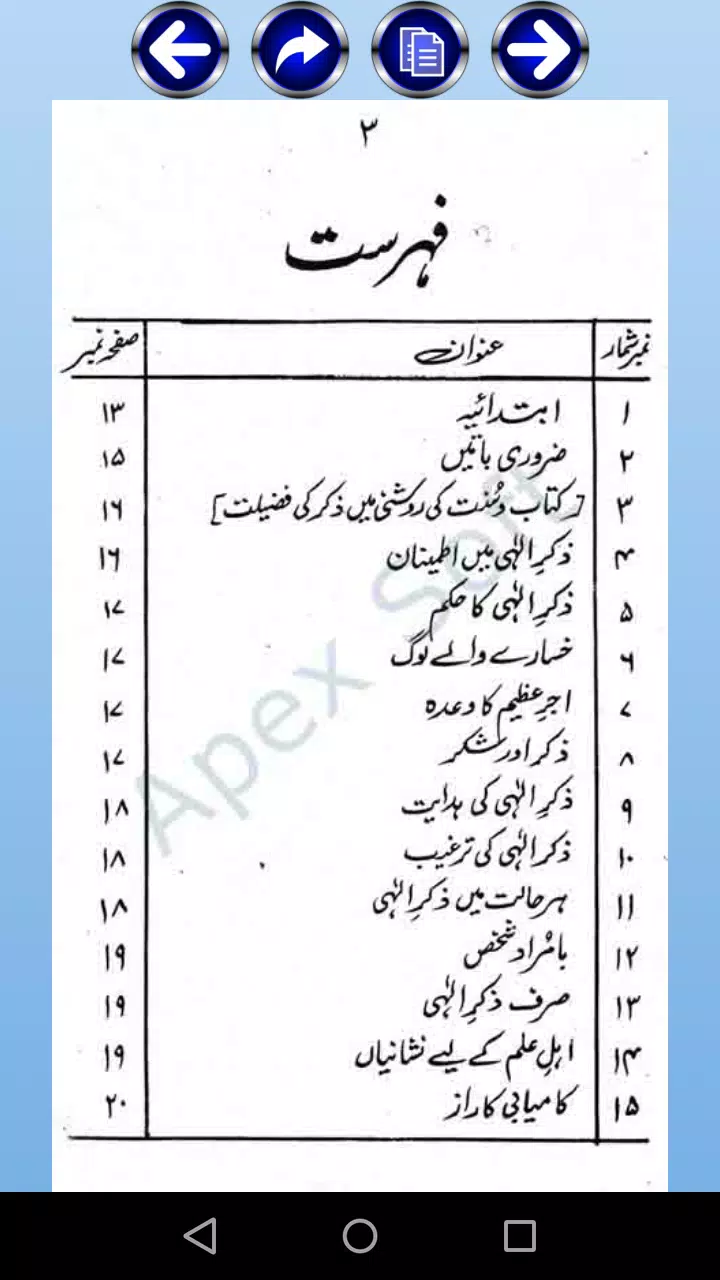 ۳
فہرست
نمبر شمار عنوان صفحہ نمبر
۱ ابتدائیہ ۱۳
۲ ضروری باتیں ۱۵
۳ [کتاب و سُنت کی روشنی میں ذکر کی فضیلت] ۱۶
۴ ذکرِ الٰہی میں اطمینان ۱۶
۵ ذکرِ الٰہی کا حکم ۱۷
۶ خسارے والے لوگ ۱۷
۷ اجرِ عظیم کا وعدہ ۱۷
۸ ذکر اور شکر ۱۷
۹ ذکرِ الٰہی کی ہدایت ۱۸
۱۰ ذکر الٰہی کی ترغیب ۱۸
۱۱ ہر حالت میں ذکرِ الٰہی ۱۸
۱۲ بامُراد شخص ۱۹
۱۳ صرف ذکرِ الٰہی ۱۹
۱۴ اہلِ علم کے لیے نشانیاں ۱۹
۱۵ کامیابی کا راز ۲۰
Apex Soft